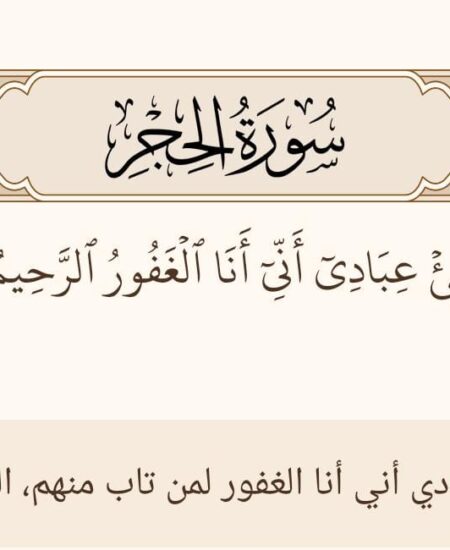 سُورَةُ الْحِجْرِ
عِبَادِىٓ أَنِّىٓ أَنَا ٱلْغَفُورُ ٱلرَّحِيمُ
أني أنا الغفور لمن تاب منهم،